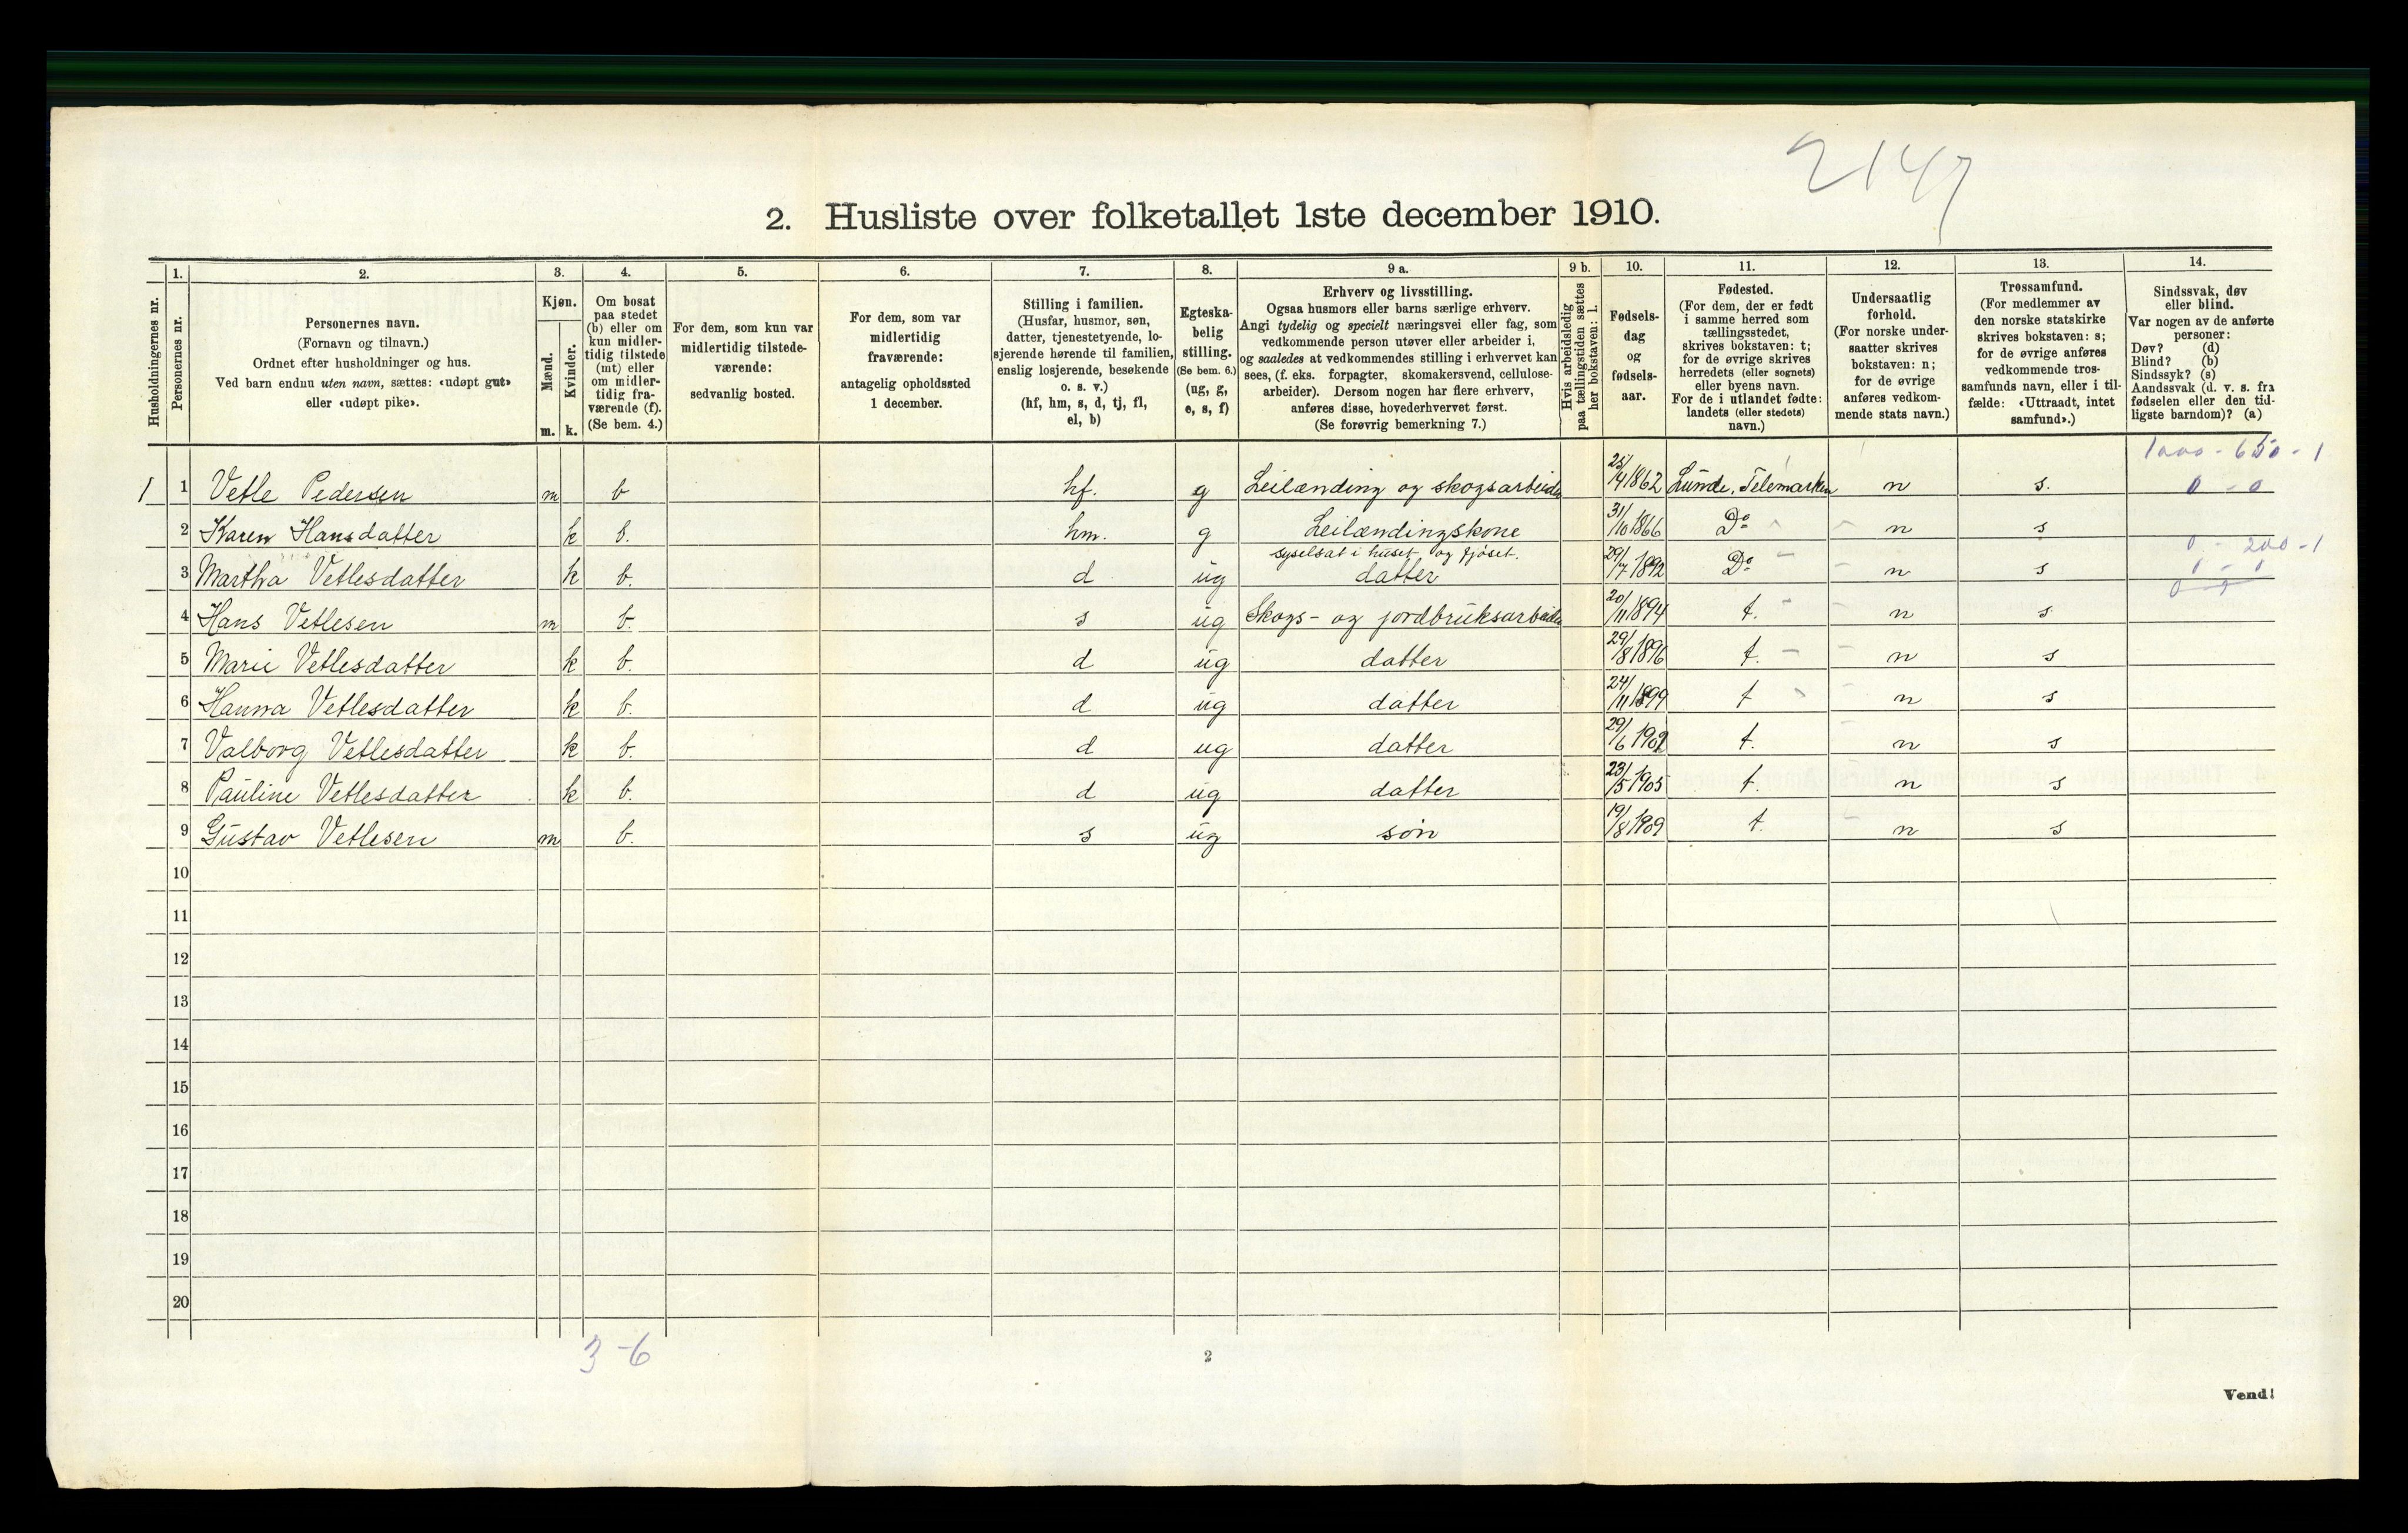 2147
2. Husliste over folketallet 1ste december 1910.
Husholdningernes nr.
1.
Personernes nr.
2.
Personernes navn.
(Fornavn og tilnavn.)
Ordnet efter husholdninger og hus.
Ved barn endnu uten navn, sættes: «udøpt gut»
eller «udøpt pike».
3.
Kjøn.
Mænd.
m.
Kvinder.
k.
4.
Om bosat
paa stedet
(b) eller om
kun midler-
tidig tilstede
(mt) eller
om midler-
tidig fra-
værende (f).
(Se bem. 4.)
5.
For dem, som kun var
midlertidig tilstede-
værende:
sedvanlig bosted.
6.
For dem, som var
midlertidig
fraværende:
antagelig opholdssted
1 december.
7.
Stilling i familien.
(Husfar, husmor, søn,
datter, tjenestetyende, lo-
sjerende hørende til familien,
enslig losjerende, besøkende
o. s. v.)
(hf, hm, s, d, tj, fl,
el, b)
8.
Egteska-
belig
stilling.
(Se bem. 6.)
(ug, g,
e, s, f)
9 a.
Erhverv og livsstilling.
Ogsaa husmors eller barns særlige erhverv.
Angi tydelig og specielt næringsvei eller fag, som
vedkommende person utøver eller arbeider i,
og saaledes at vedkommendes stilling i erhvervet kan
sees, (f. eks. forpagter, skomakersvend, cellulose-
arbeider). Dersom nogen har flere erhverv,
anføres disse, hovederhvervet først.
(Se forøvrig bemerkning 7.)
9 b.
Hvis arbeidsledig
paa tællingstiden sættes
her bokstaven: l.
10.
Fødsels-
dag
og
fødsels-
aar.
11.
Fødested.
(For dem, der er født
i samme herred som
tællingsstedet,
skrives bokstaven: t;
for de øvrige skrives
herredets (eller sognets)
eller byens navn.
For de i utlandet fødte:
landets (eller stedets)
navn.)
12.
Undersaatlig
forhold.
(For norske under-
saatter skrives
bokstaven: n;
for de øvrige
anføres vedkom-
mende stats navn.)
13.
Trossamfund.
(For medlemmer av
den norske statskirke
skrives bokstaven: s;
for de øvrige anføres
vedkommende tros-
samfunds navn, eller i til-
fælde: «Uttraadt, intet
samfund».)
14.
Sindssvak, døv
eller blind.
Var nogen av de anførte
personer:
Døv? (d)
Blind? (b)
Sindssyk? (s)
Aandssvak (d. v. s. fra
fødselen eller den tid-
ligste barndom)? (a)
1000 - 650 - 1
1 1 Vetle Pedersen m b hf. g Leilænding og skogsarbeider 25/4 1862 Lunde, Telemarken n s. 0 - 0
2 Karen Hansdatter k b. hm. g Leilændingskone 31/10 1866 Do n s
syselsat i huset og fjöset.
0 - 200 - 1
3 Martha Vetlesdatter k b. d ug datter 29/7 1892 Do n s 0 - 0
4 Hans Vetlesen m b. s ug Skogs- og jordbruksarbeider 20/11 1894 t. n s
5 Marie Vetlesdatter k b. d ug datter 29/8 1896 t. n s
6 Hanna Vetlesdatter k b. d ug datter 24/11 1899 t n s
7 Valborg Vetlesdatter k b. d ug datter 29/6 1902 t. n s
8 Pauline Vetlesdatter k b. d ug datter 23/5 1905 t. n s
9 Gustav Vetlesen m b. s ug søn 19/8 1909 t. n s
10
11
12
13
14
15
16
17
18
19
20
3-6
2
Vend!